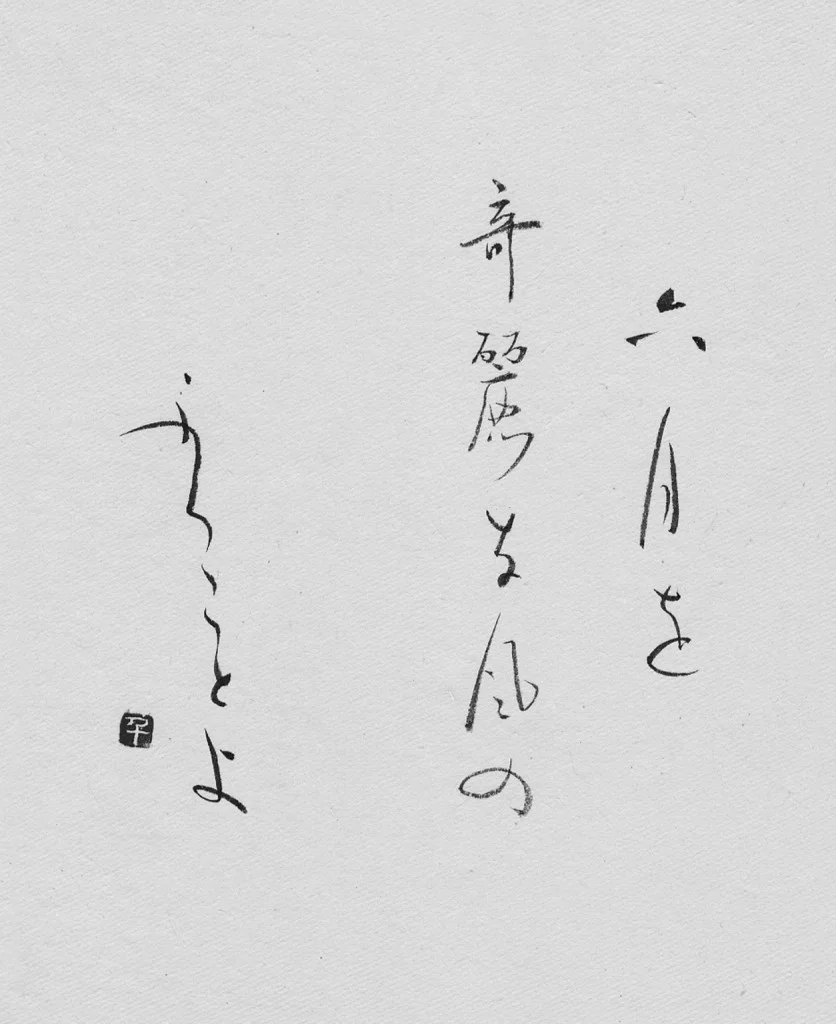 六月を
奇麗な風の
吹くことよ